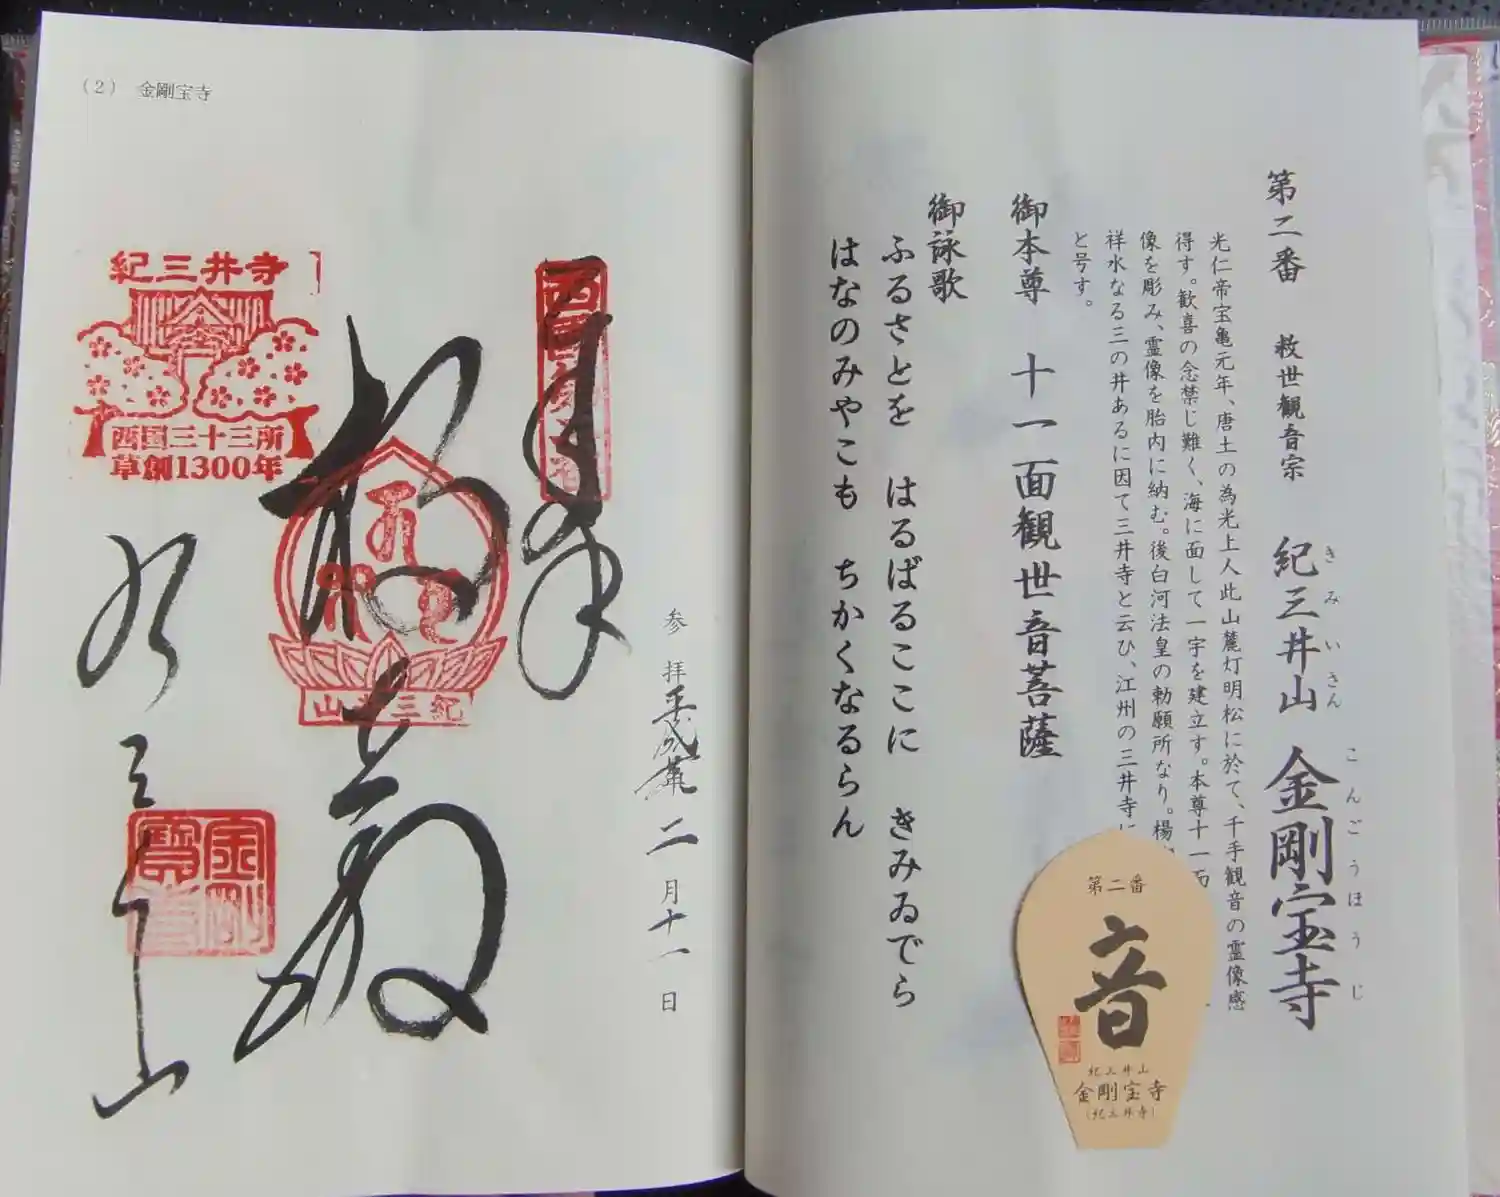 第二番 救世観音宗 紀三井山 金剛宝寺
きみいさん こんごうほうじ
光仁帝宝亀元年、唐土の為光上人此山麓灯明松に於て、千手観音の霊像感
得す。歓喜の念禁じ難く、海に面して一宇を建立す。本尊十一面
像を彫み、霊像を胎内に納む。後白河法皇の勅願所なり。楊
祥水なる三の井あるに因て三井寺と云ひ、江州の三井寺に
と号す。
御本尊 十一面観世音菩薩
御詠歌
ふるさとを はるばるここに きみゐでら
はなのみやこも ちかくなるらん
第二番
音
紀三井山
金剛宝寺
(紀三井寺)
(2) 金剛宝寺
奉拝
参拝平成 年 二月十一日
紀三井寺
西国三十三所
草創1300年
紀三井山
紀三井山
金剛寶寺